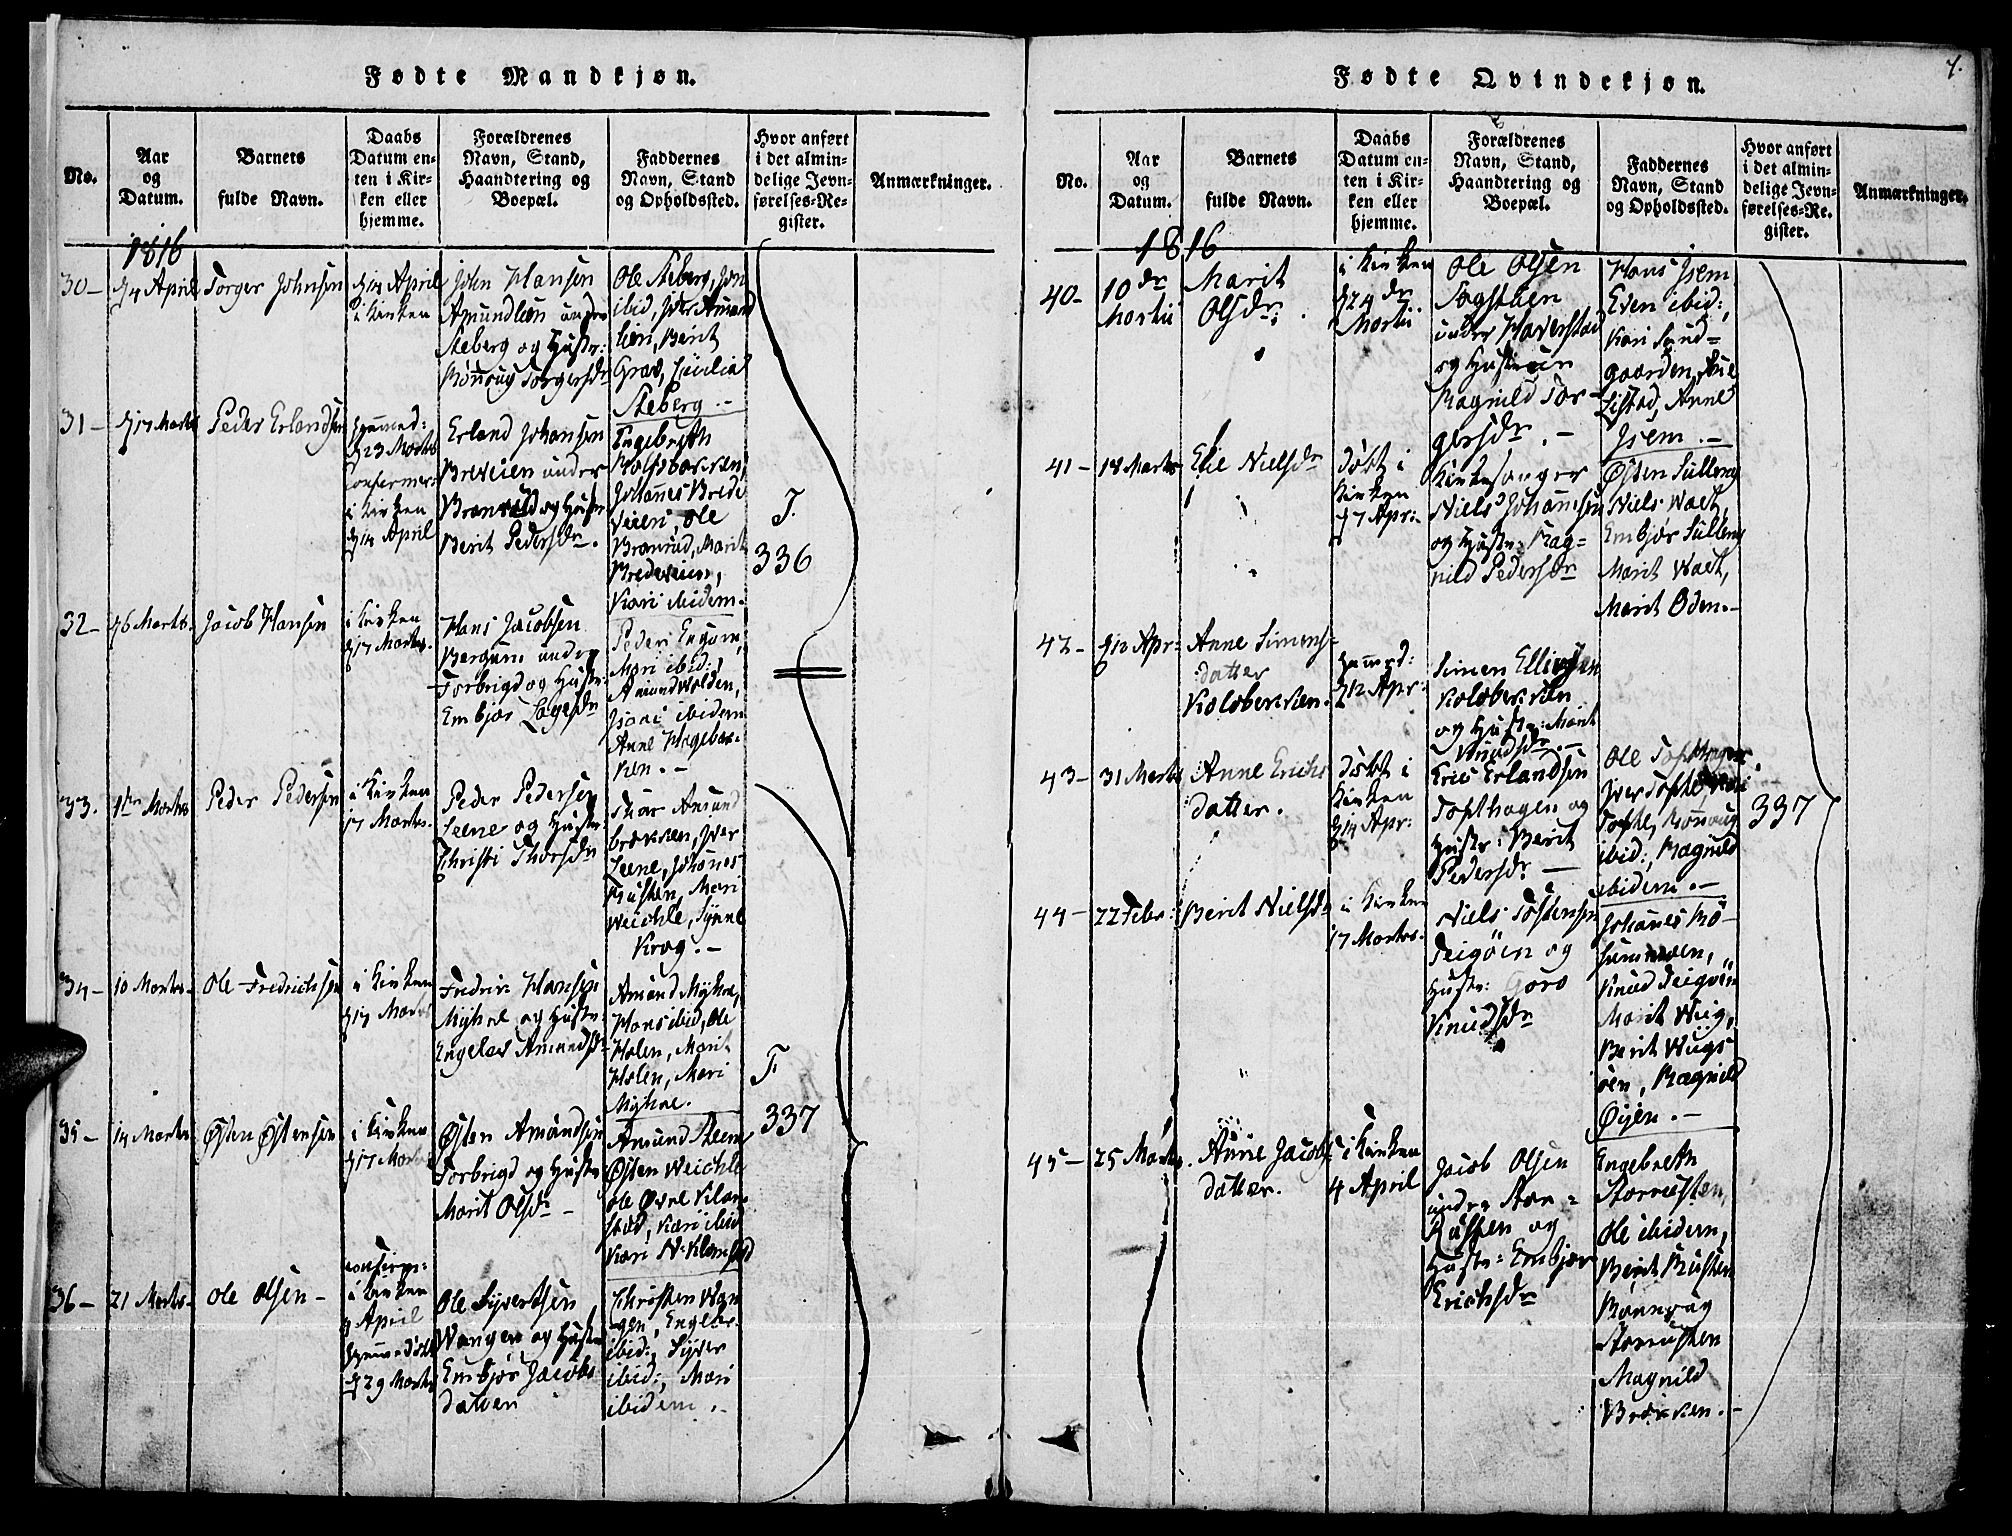 Fødte Mandkjøn.
No.
Aar
og
Datum.
Barnets
fulde Navn.
Daabs
Datum en-
ten i Kir-
ken eller
hjemme.
Forældrenes
Navn, Stand,
Haandtering og
Boepæl.
Faddernes
Navn, Stand
og Opholdssted.
Hvor anført
i det almin-
delige Jevn-
førelses-Re-
gister.
Anmærkninger.
1816
30 –
April
Torger Johnsen
14 April
i Kirken
John Hansen
Amundlien under
Steberg og Hustr:
Rønnoug Torgersdr
Ole Steberg, Jon
ibid, Iver Amund
lien, Berit
Grav, Cicilia
Steberg. –
31 –
17 Marts
Peder Erlandsen
23 Marts
i Kirken
14 April
Erland Johansen
under
og Hustr
Berit Pedersdr.
Engebreth
Johannes Brede
veien, Ole
Marit
Bredeveien,
Kari ibidem.
T.
336
32 –
6 Marts.
Jacob Hansen
i Kirken
17 Marts.
Hans Jacobsen
under
Forbrigd og Hustr:
Embjør
Peder
Mari ibid:,
Amund Wolden,
ibidem
Anne Hagebak-
ken. –
33.
1ste Marts
Peder Pedersen
i Kirken
17 Marts.
Peder Pedersen
Leene og Hustr:
Christi Thorsdr
Thor Amund
brekken, Iver
Leene, Johannes
Rusten, Mari
Weichle, Synne
Krog. –
34 –
10 Marts.
Ole Fredrichsen
i Kirken
17 Marts
Fredric Hansen
Myhre og Hustr:
Amundsdr
Amund Myhre,
Hans ibid, Ole
Holen, Marit
Holen, Mari
Myhre.
T.
337
35 –
14 Marts.
Østen Østensen
i Kirken
17 Marts
Østen Amundsen
Forbrigd og Hustr
Marit Olsdr –
Amund Steen
Østen Weichle
Ole Øvre Klom-
stad, Kari ibid
Kari N: Klomstad
36 –
21 Marts.
Ole Olsen –
i Kirken
April
29 Marts
Ole Syvertsen
Wangen og Hustr
Embjør Jacobs
datter
Christen Wan
gen,
ibid:, Syver
ibid:, Mari
ibidem. –
7.
Fødte Qvindekjøn.
No.
Aar
og
Datum.
Barnets
fulde Navn.
Daabs
Datum en-
ten i Kir-
ken eller
hjemme.
Forældrenes
Navn, Stand,
Haandtering og
Boepæl.
Faddernes
Navn, Stand
og Opholdssted.
Hvor anført
i det almin-
delige Jevn-
førelses-Re-
gister.
Anmærkninger.
1816
40 –
10 dr
Martii
Marit
Olsdr.
i Kirken
24 dr
Martii
Ole Olsen
under Haverstad
og Hustrue
Ragnild Tor-
gersdr. –
Hans Isem
Even ibid:,
Kari Sund-
gaarden,
Listad, Anne
Isem. –
41 –
18 Marts
Elie Nielsdr
Døbt i
Kirken
7 Apr:
Kirkesanger
Niels Johannsen
og Hustr: Rag-
nild Pedersdr
Østen Sulleng
Niels Waet,
Embjør Sulleng
Marit Waet,
Marit Oden. –
42 –
Apr:
Anne Simens-
datter
Kolobekken.
12 Apr:
Simen Ellingsen
Kolobekken
og Hustr: Marit
Knudsdr. –
43 –
31 Marts
Anne Erichs
datter.
Døbt i
Kirken
14 Apr:
Eric Erlandsen
Tofthagen og
Hustr: Berit
Pedersdr –
Ole Tofthagen,
Iver Tofte, Mari
Tofte, Rønnoug
ibid:, Ragnild
ibidem. –
337
44 –
22 Febr:
Berit Nielsdr
i Kirken
17 Marts.
Niels Tostensen
Teigøen og
Hustr: Goro
Knudsdr
Johannes Rø-
summoen,
Knud Teigøen
Marit Wiig,
Berit Wiigs
øen, Ragnild
Øyen. –
45 –
25 Marts.
Anne Jacobs
datter.
i Kirken
4 April
Jacob Olsen
under Stor-
Rusten og
Hustr: Embjør
Erichsdr
Engebreth
Storrusten,
Ole ibidem,
Berit Rusten
Rønnoug
Storrusten
Magnild
Brekken. –